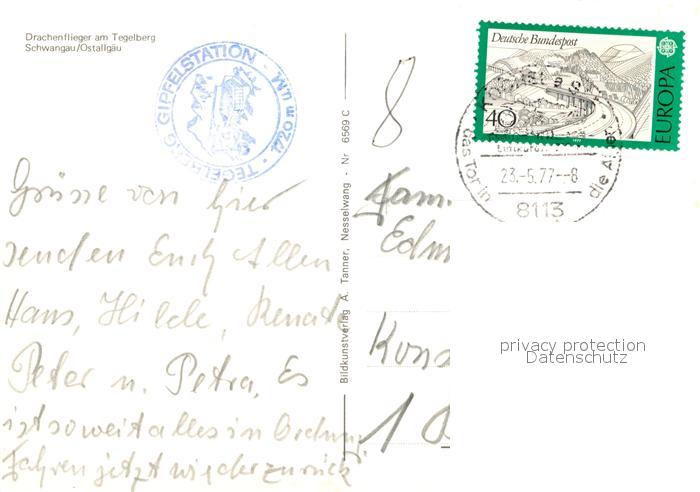 Drachenflieger am Tegelberg
Schwangau/Ostallgäu
TEGELBERG GIPFELSTATION · 1720 m ü.M ·
Grüsse von hier
senden Euch Allen
Hans, Hilde, Renate
Peter u. Petra, Es
ist soweit alles in Ordnung
Fahren jetzt wieder zurück
Bildkunstverlag A. Tanner, Nesselwang - Nr. 6569 C
8
Deutsche Bundespost
EUROPA
40
das Tor in die
23.-5.77--8
8113
Fam.
Edm
Kons
1
privacy protection
Datenschutz